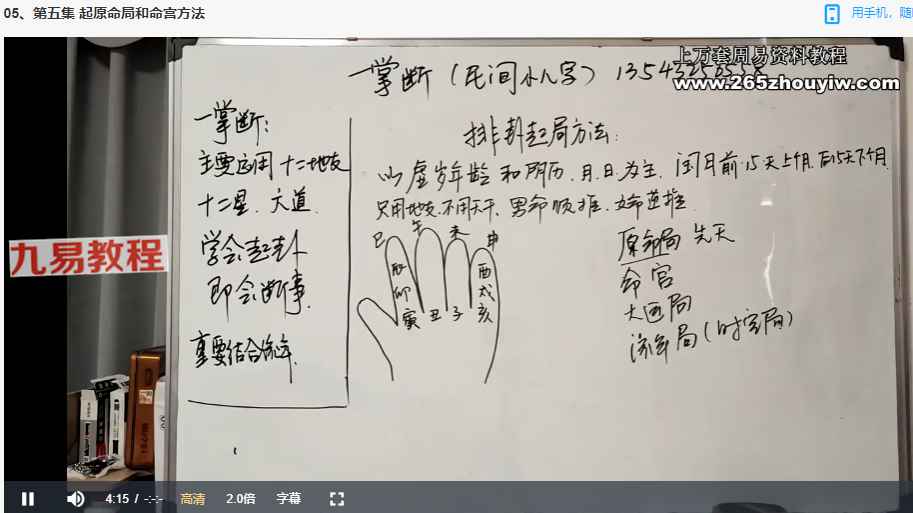 05、第五集 起原命局和命宫方法
用手机，随
上万套周易资料教程
www.265zhouyiw.com
一掌断（民间小八字）
一掌断：
主要应用 十二地支
十二星、六道
学会起卦
即会断事
重要结合流年
排卦起局方法：
以虚岁年龄和阴历、月、日、为主、闰月前15天上个月、后15天下个月
只用地支、不用天干、男命顺推、女命逆推
巳 午 未 申
辰 酉
卯 戌
寅 丑 子 亥
原命局 先天
命宫
大运局
流年局（时空局）
九易教程
4:15 / -:-:-
高清
2.0倍
字幕